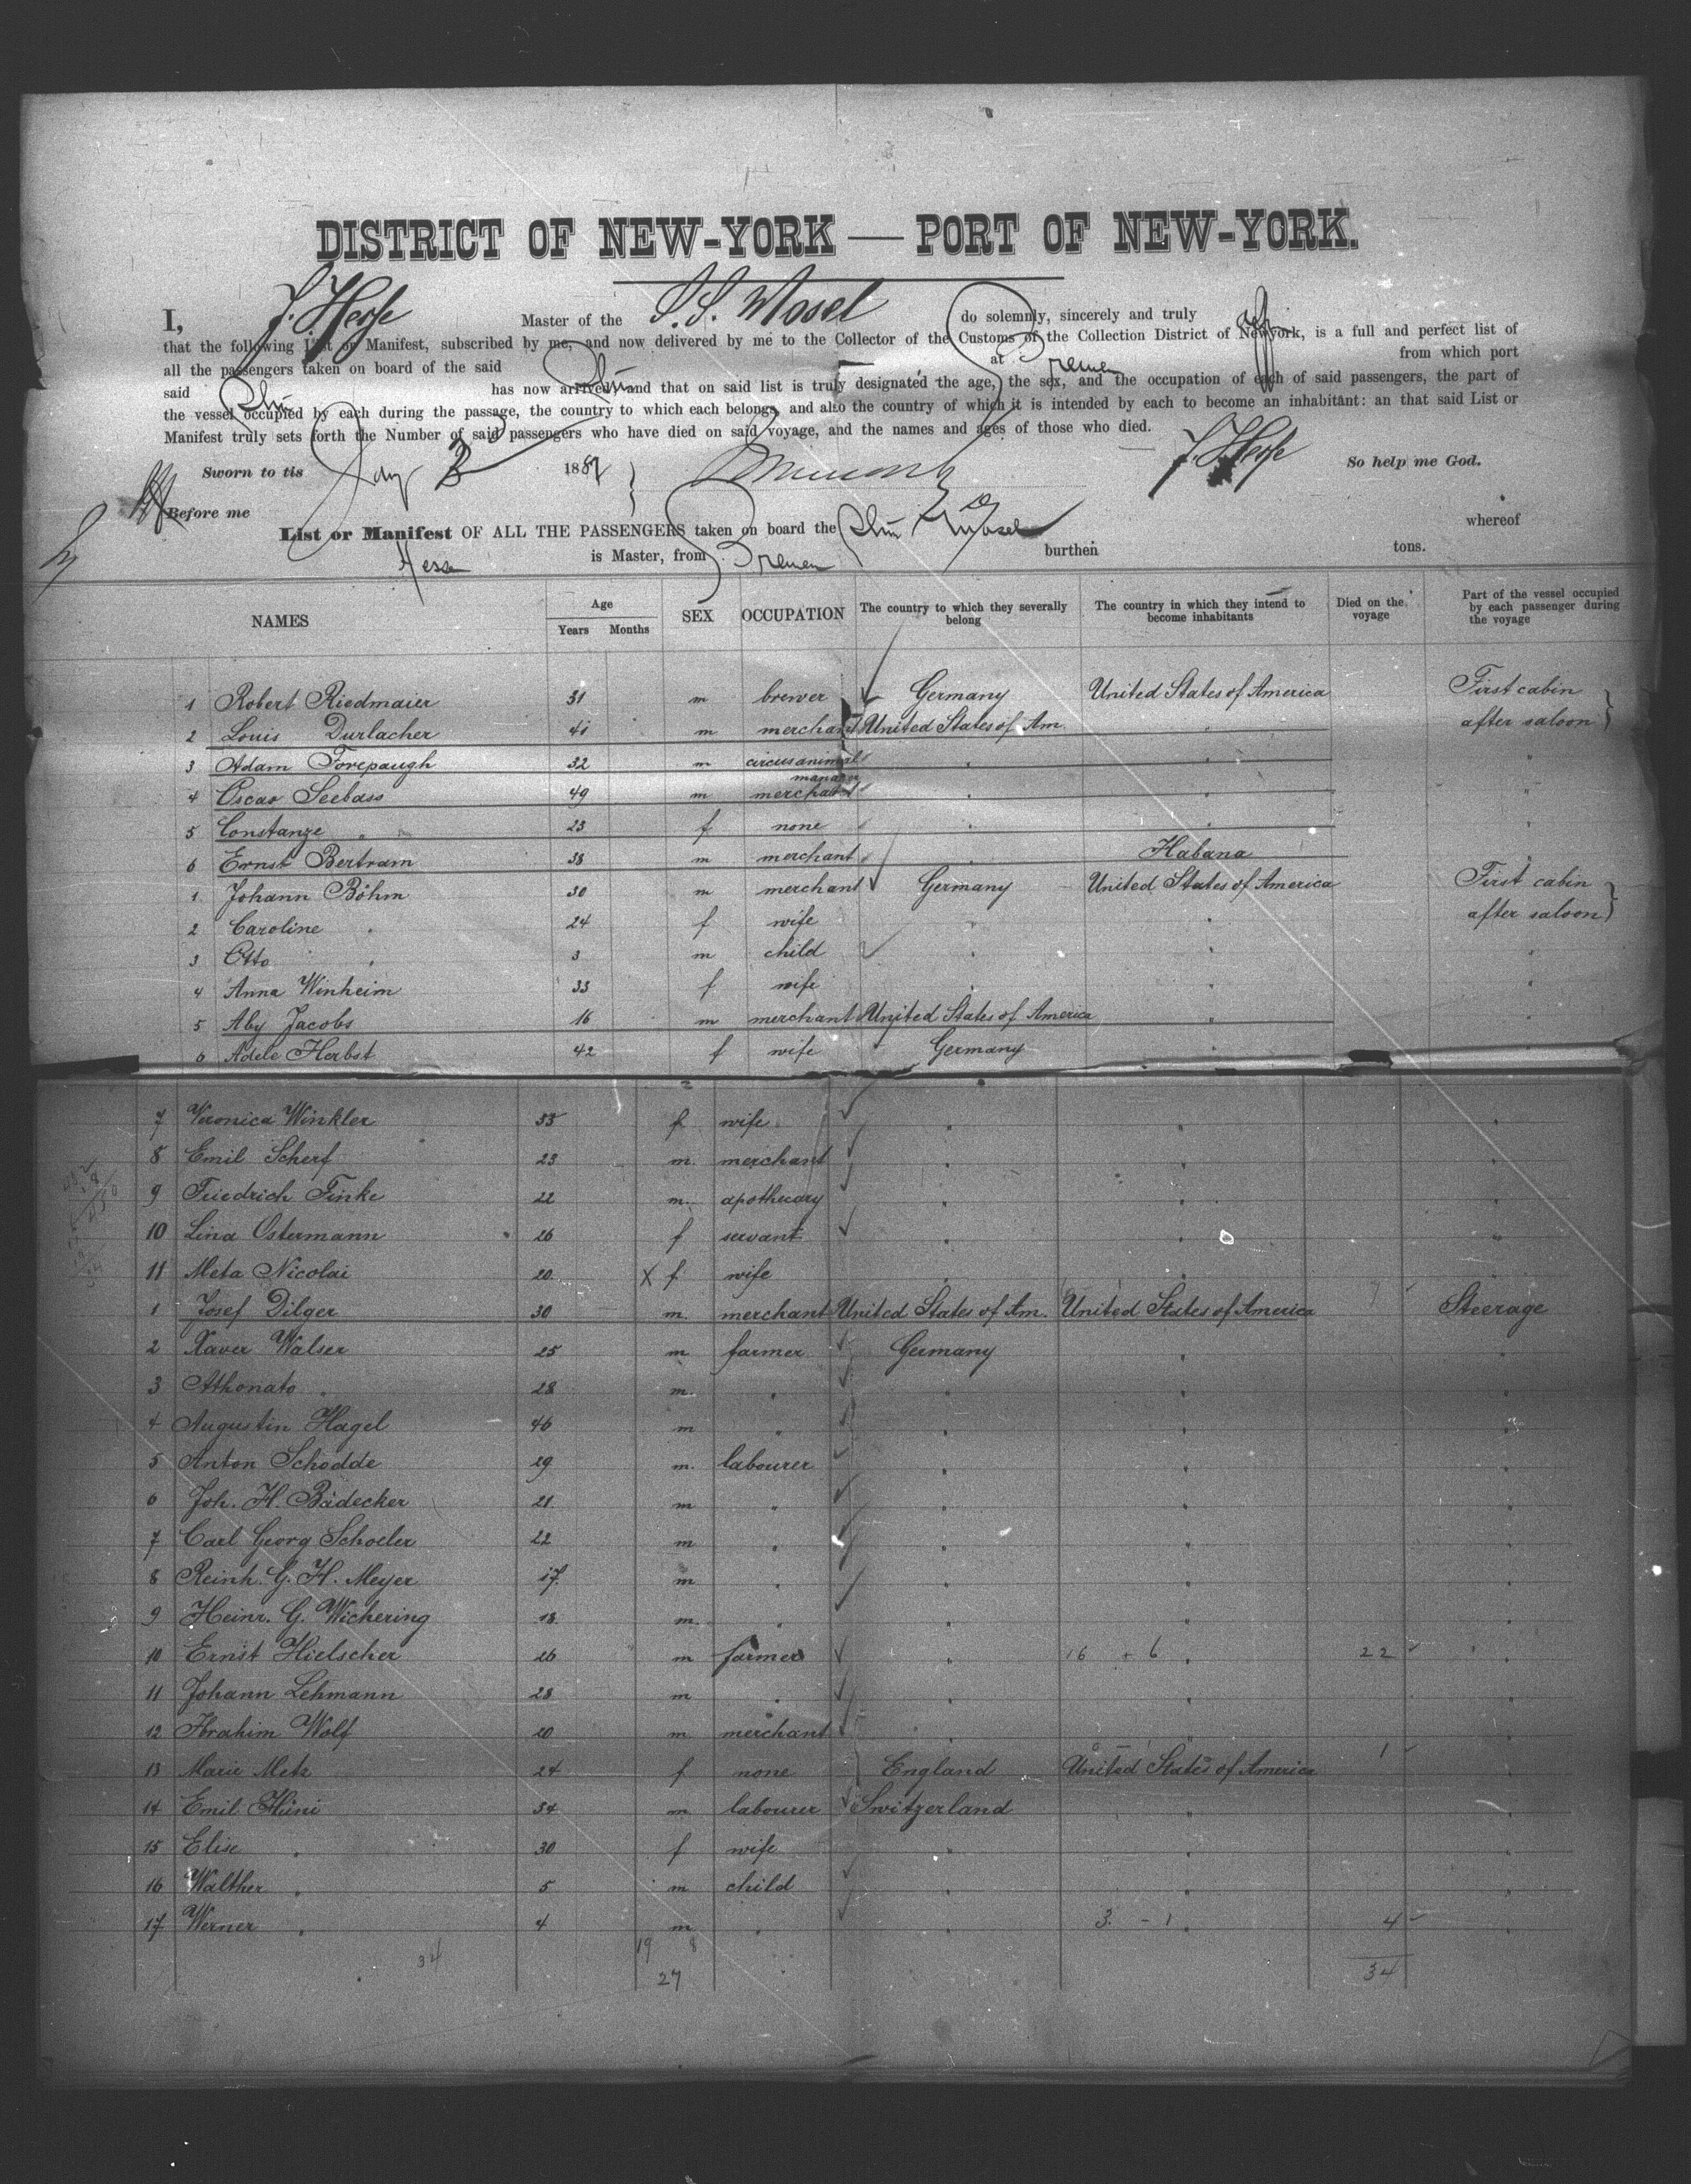 DISTRICT OF NEW-YORK — PORT OF NEW-YORK.
I, Master of the S.S. Mosel do solemnly, sincerely and truly
that the following List or Manifest, subscribed by me, and now delivered by me to the Collector of the Customs of the Collection District of New York, is a full and perfect list of
all the passengers taken on board of the said at Bremen from which port
said has now arrived, and that on said list is truly designated the age, the sex, and the occupation of each of said passengers, the part of
the vessel occupied by each during the passage, the country to which each belongs, and also the country of which it is intended by each to become an inhabitant: an that said List or
Manifest truly sets forth the Number of said passengers who have died on said voyage, and the names and ages of those who died.
Sworn to tis 188 So help me God.
Before me
List or Manifest OF ALL THE PASSENGERS taken on board the Mosel whereof
is Master, from Bremen burthen tons.
NAMES Age Years Months SEX OCCUPATION The country to which they severally belong The country in which they intend to become inhabitants Died on the voyage Part of the vessel occupied by each passenger during the voyage
1 Robert Riedmaier 31 m brewer Germany United States of America First cabin
2 Louis Durlacher 41 m merchant United States of Am. " after saloon
3 Adam Forepaugh 32 m circus animal manager " " "
4 Oscar Seebass 49 m merchant " " "
5 Constanze " 23 f none " " "
6 Ernst Bertram 38 m merchant " Habana "
1 Johann Böhm 30 m merchant Germany United States of America First cabin
2 Caroline " 24 f wife " " after saloon
3 Otto " 3 m child " " "
4 Anna Winheim 33 f wife " " "
5 Aby Jacobs 16 m merchant United States of America " "
6 Adele Herbst 42 f wife Germany " "
7 Veronica Winkler 33 f wife " " "
8 Emil Scherf 23 m. merchant " " "
9 Friedrich Finke 22 m. apothecary " " "
10 Lina Ostermann 26 f servant " " "
11 Meta Nicolai 20 X f wife " " "
1 Josef Dilger 30 m. merchant United States of Am. United States of America 7 Steerage
2 Xaver Walser 25 m farmer Germany " "
3 Athonato " 28 m. " " " "
4 Augustin Hagel 46 m " " " "
5 Anton Schodde 29 m. labourer " " "
6 Joh. H. Bädecker 21 m " " " "
7 Carl Georg Schoeler 22 m " " " "
8 Reinh. G. H. Meyer 17 m " " " "
9 Heinr. G. Wichering 18 m. " " " "
10 Ernst Hielscher 26 m farmer " 16 + 6 " 22 "
11 Johann Lehmann 28 m " " " "
12 Abrahim Wolf 20 m merchant " " "
13 Marie Metz 24 f none England United States of America 1 "
14 Emil Hüni 34 m labourer Switzerland " "
15 Elise " 30 f wife " " "
16 Walther " 5 m child " " "
17 Werner " 4 m " " 3 - 1 " 4 "
34 19 8 34
27